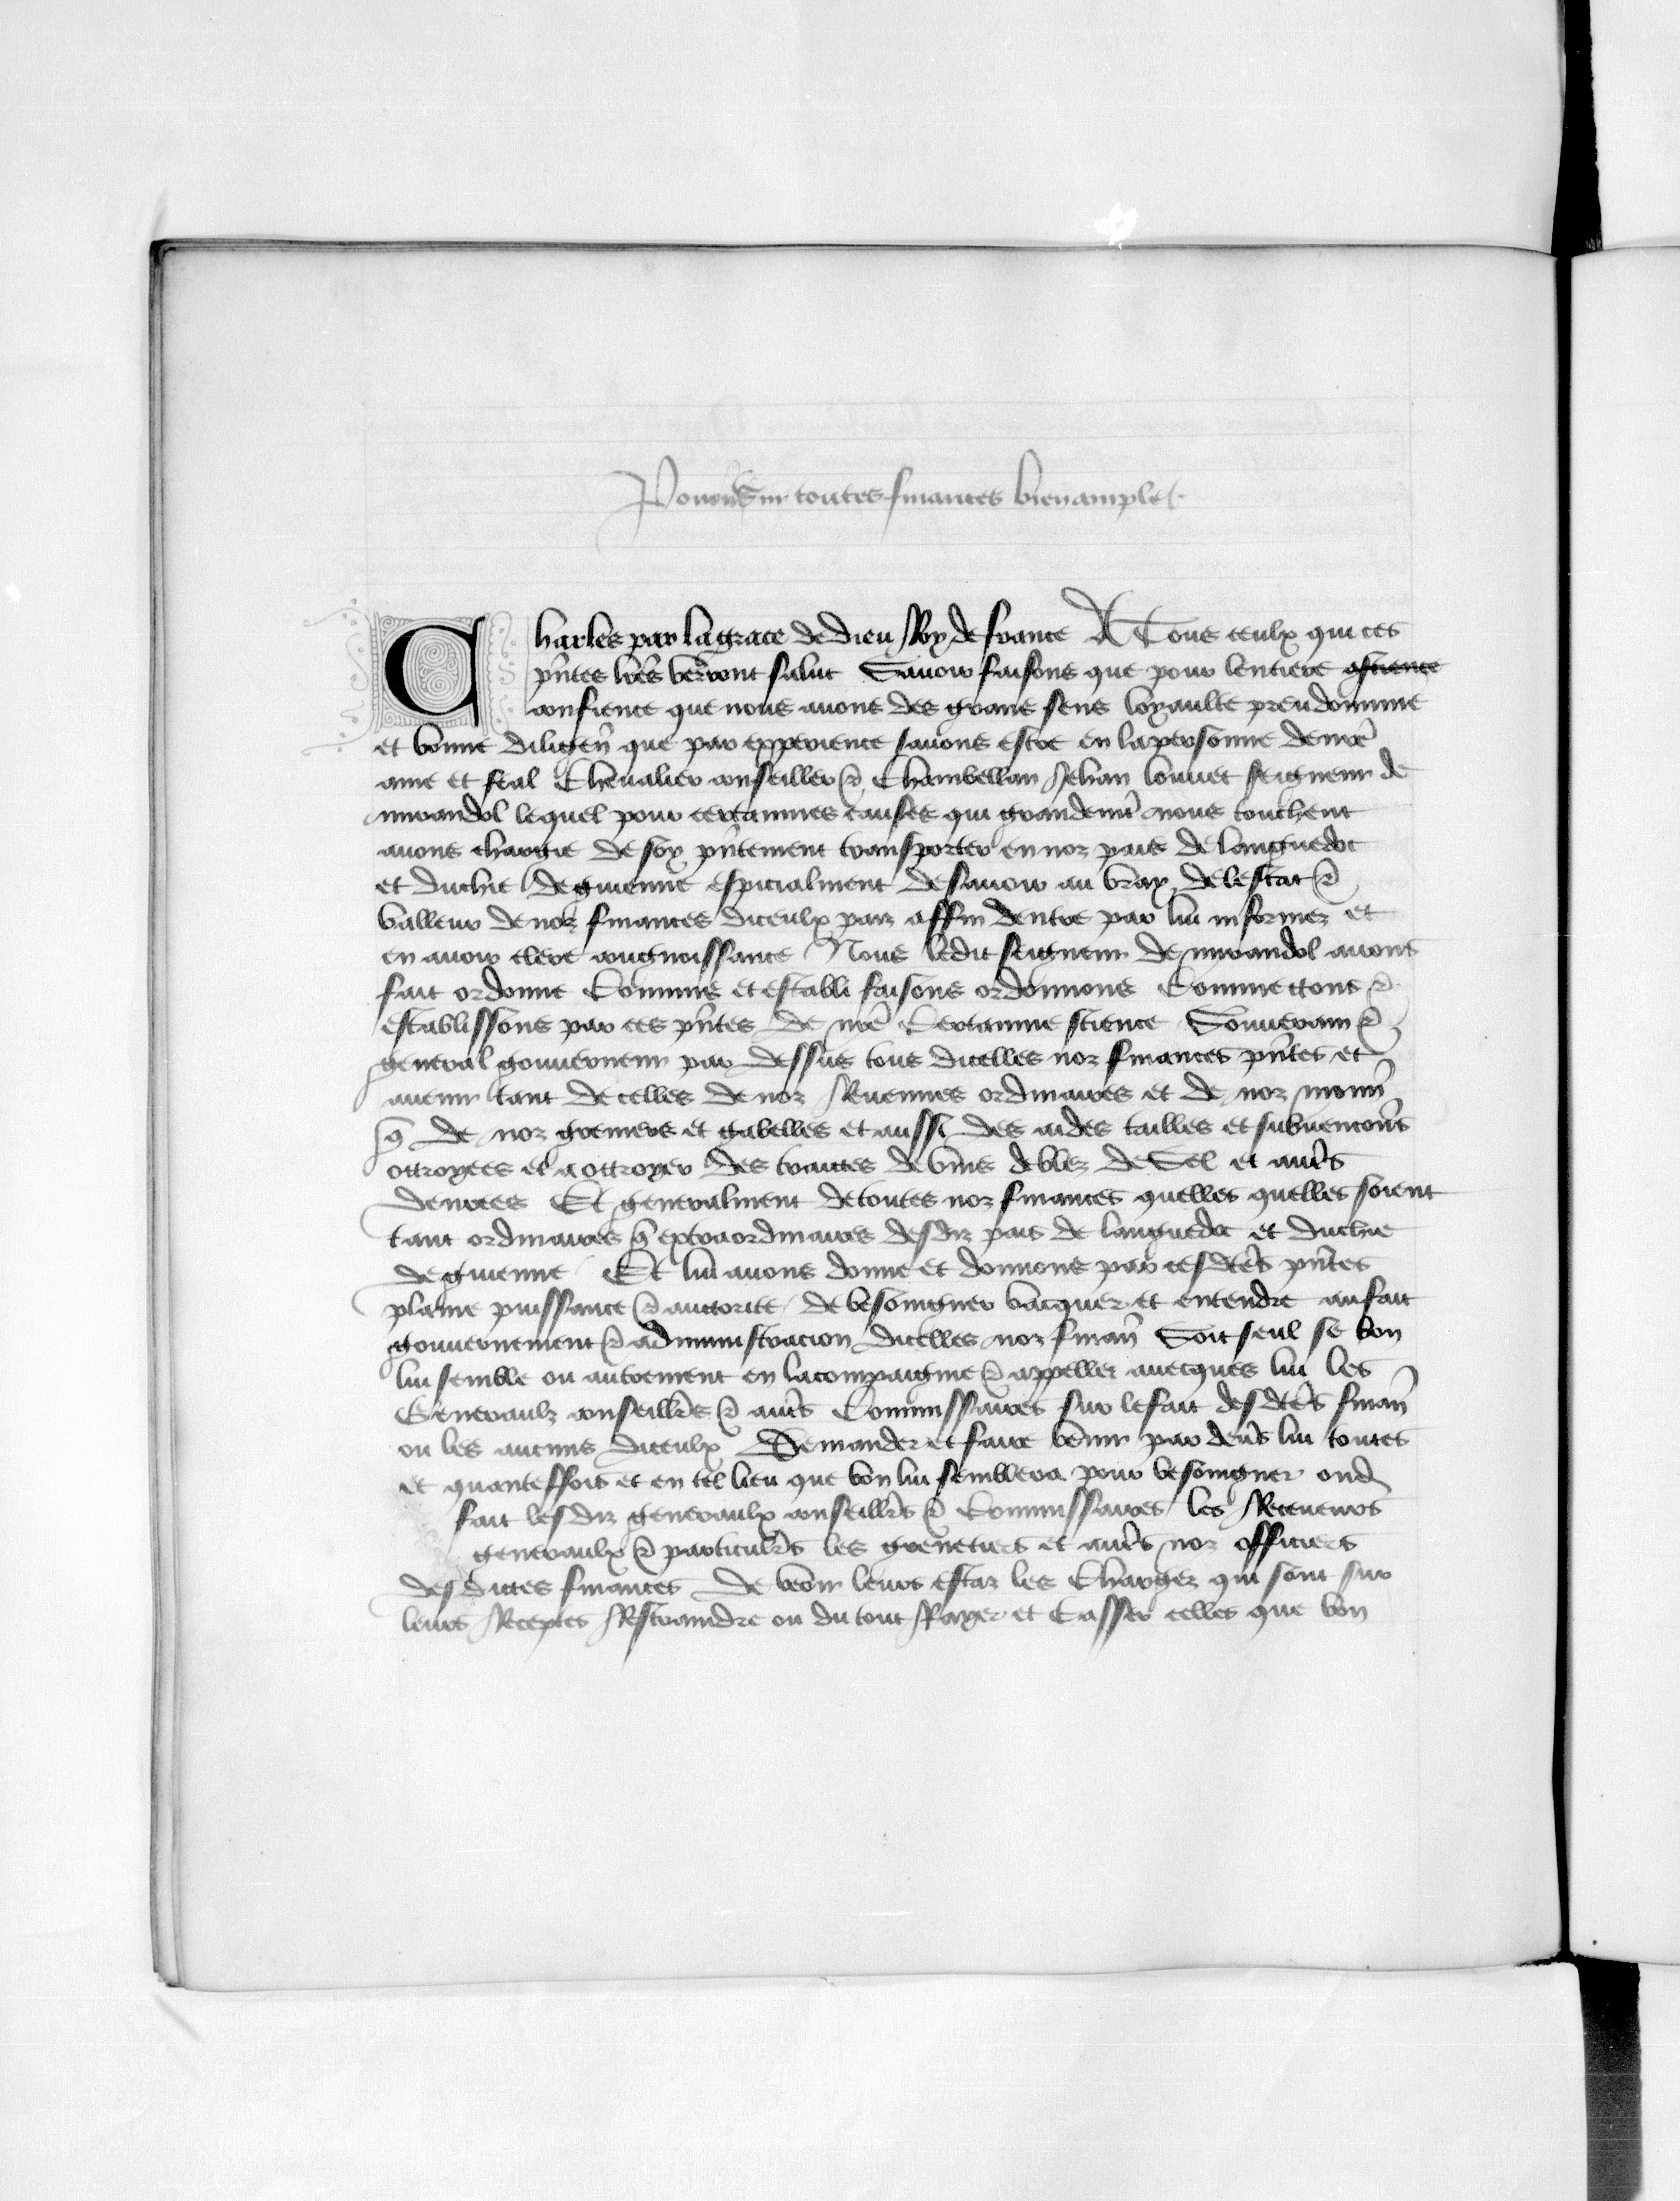 Pouoir sur toutes finances bien ample
Charles par la grace de dieu Roy de france A Tous ceulx qui ces
pñtes lrẽs verront salut Sauoir faisons que pour lentiere
confience que nous auons des grans sens loyaulte preudommie
et bonne diligeñ que par experience sauons estre en la personne de nrẽ
ame et feal Cheualier conseiller & Chambellan Jehan louuet seigneur de
mirandol lequel pour certaines causes qui grandemt̃ nous touchent
auons chargie de soy pñtement transporter en noz pais de languedoc
et duchie de guienne especialment de sauoir au vray de lestat &
valleur de noz finances diceulx pais affin dentre par lui informez et
en auoir clere congnoissance Nous ledit seigneur de mirandol auons
fait ordonne Commis et establi faisons ordonnons Commettons &
establissons par ces pñtes de nrẽ Certainne science Souuerain &
general gouuerneur par dessus tous dicelles noz finances pñtes et
auenir tant de celles de noz Reuenues ordinaires et de noz monn̄
q̃ de noz greniers et gabelles et aussi des aides tailles et subuencons̃
ottroyees et a ottroyer des traites de vins de blez de Sel et autr̃s
denrees Et generalment de toutes noz finances quelles quelles soient
tant ordinaires q̃ extraordinaires desdiz pais de languedoc et duchie
de guienne Et lui auons donne et donnons par cesdtẽs pñtes
plaine puissance & auctorite de besoingner vacquer et entendre au fait
gouuernement & administracion dicelles noz finañ Soit seul se bon
lui semble ou autrement en lacompaignie & appeller auecques lui les
Generaulz conseillr̃s & autr̃s Commissaires sur le fait desdtẽs finañ
ou les aucuns diceulx De mander et faire venir par deũs lui toutes
et quanteffois et en tel lieu que bon lui semblera pour besoingner oud
fait lesdiz generaulx conseillr̃s & Commissaires les Receueurs
generaulx & particulr̃s les grenetiers et autr̃s noz officiers
desdictes finances De veoir leurs estaz les Charges qui sont sur
leurs Receptes Restraindre ou du tout Rayer et Casser celles que bon